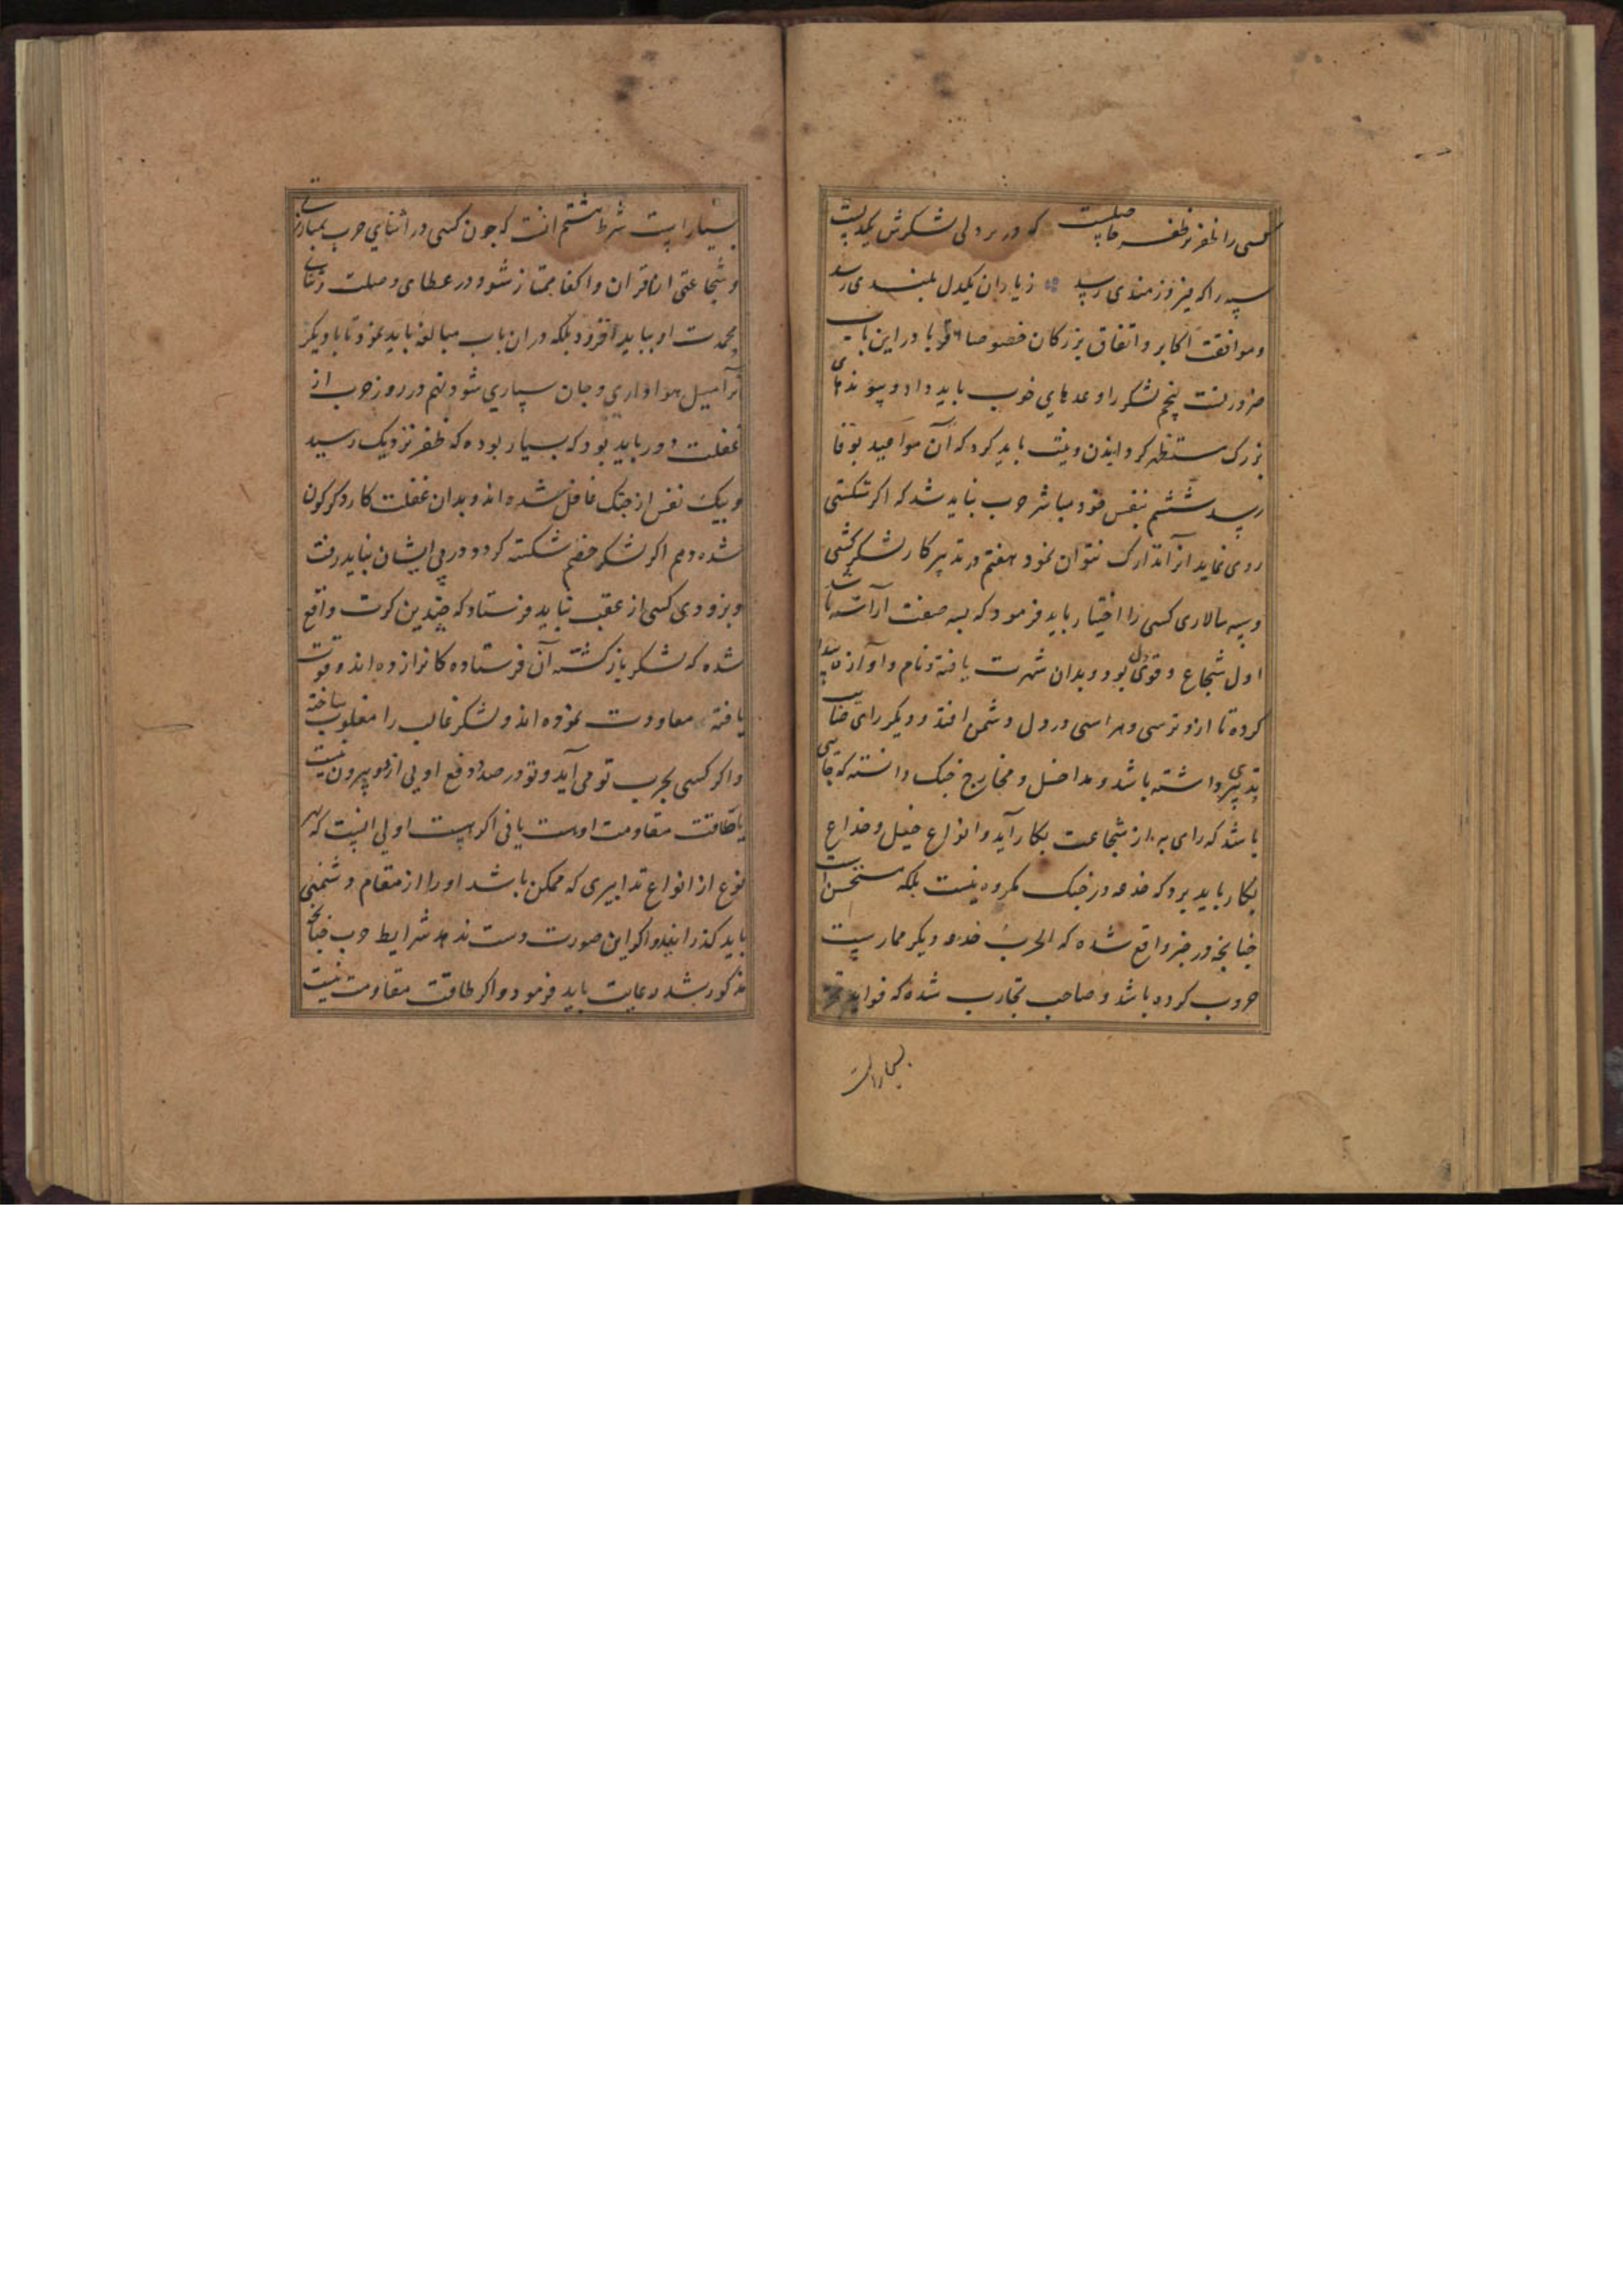 کسی را ظفر بر ظفر حاصلست که در بر دلی لشکرش یکدلیست
سپه را که فیروزمندی رسد زیاران یکدل بلندی رسد
وموافقت اکابر واتفاق بزرکان خصوصا اقربا در این باب
ضرورنست پنجم لشکر را وعدهای خوب باید داد وپیوندهای
بزرک مستظهر کردانیدن ونیت باید کرد که آن مواعید بوفا
رسد ششم بنفس خود مباشر حرب نباید شد که اکر شکستی
روی نماید انرا تدارک نتوان نمود هفتم در تدبیر کار لشکرکشی
وسپه سالاری کسی را اختیار باید فرمود که بسه صفت آراسته باشد
اول شجاع وقوی دل بود وبدان شهرت یافته ونام وآوازه پیدا
کرده تا ازو ترسی وهراسی در دل دشمن افتد ودیکر رای صایب
تدبیری داشته باشد ومداخل ومخارج جنک دانسته که جائی
باشد که رای به از شجاعت بکار آید وانواع حیل وخداع
بکار باید برد که خدعه در جنک مکروه نیست بلکه مستحسن است
چنانچه در خبر واقع شده که الحرب خدعه ودیکر ممارست
حروب کرده باشد وصاحب تجارب شده که فواید تجربه
بسیار است
بسیار است شرط هشتم انست که چون کسی در اثنای حرب بمبارزتی
وشجاعتی از اقران واکفا ممتاز شود در عطای وصلت وثنای
محمدت او بباید افزود بلکه در ان باب مبالغه باید نمود تا با دیکر
انرا میل هواداری وجان سپاری شود نهم در روز حرب از
غفلت دور باید بود که بسیار بوده که ظفر نزدیک رسید
وبیک نفس از جنک غافل شده اند وبدان غفلت کار دکرکون
شده دهم اکر لشکر خصم شکسته کردد در پی ایشان نباید رفت
وبزودی کسی از عقب نباید فرستاد که چندین کرت واقع
شده که لشکر بازکشته آن فرستاده کانرا زده اند وقوت
یافته معاودت نموده اند ولشکر غالب را مغلوب ساخته
واکر کسی بحرب تو می آید وتو در صدد دفع اویی از دو بیرون نیست
یا طاقت مقاومت اوست یا نی اکر هست اولی اینست که بهر
نوع از انواع تدابیری که ممکن باشد او را از مقام دشمنی
باید کذرانید واکر این صورت دست ندهد شرایط حرب چنانچه
مذکور شد رعایت باید فرمود واکر طاقت مقاومت نیست